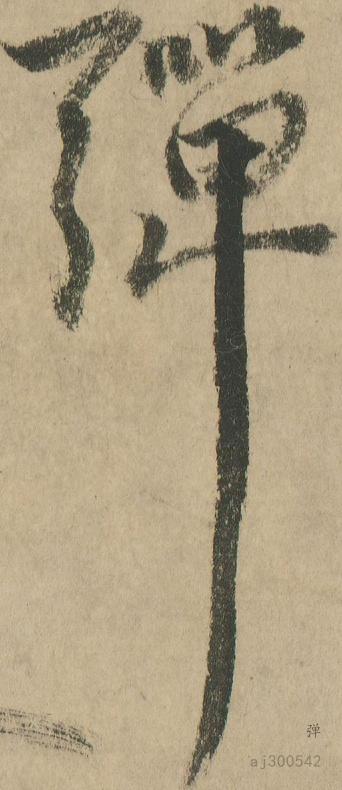 彈
弹
aj300542